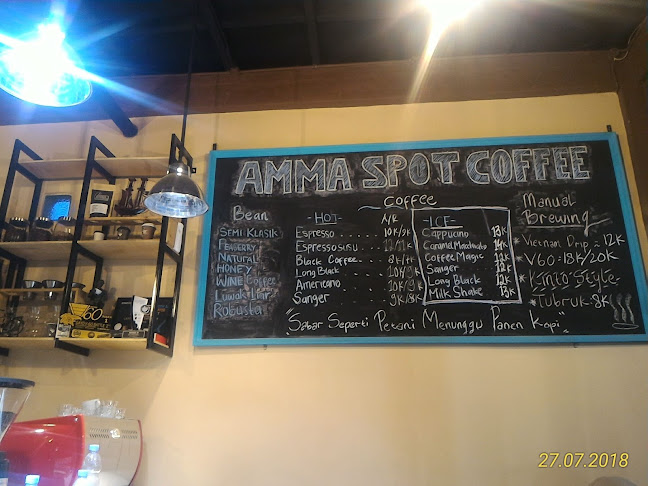 AMMA SPOT COFFEE
Coffee
Bean
SEMI KLASIK
PEABERRY
NATURAL
HONEY
WINE COFFEE
LUWAK LIAR
ROBUSTA
-HOT- A/R
ESPRESSO 10K/9K
ESPRESSO SUSU
BLACK COFFEE
LONG BLACK
AMERICANO
SANGER 9K/8K
-ICE-
CAPPUCINO 13K
CARAMEL MACCHIATO 14K
COFFEE MAGIC
SANGER 12K
LONG BLACK 12K
MILK SHAKE 13K
Manual
Brewing
* VIETNAM DRIP = 12K
* V60 = 18K/20K
* KINTO STYLE
* TUBRUK = 8K
"SABAR SEPERTI PETANI MENUNGGU PANEN KOPI"
V60
27.07.2018